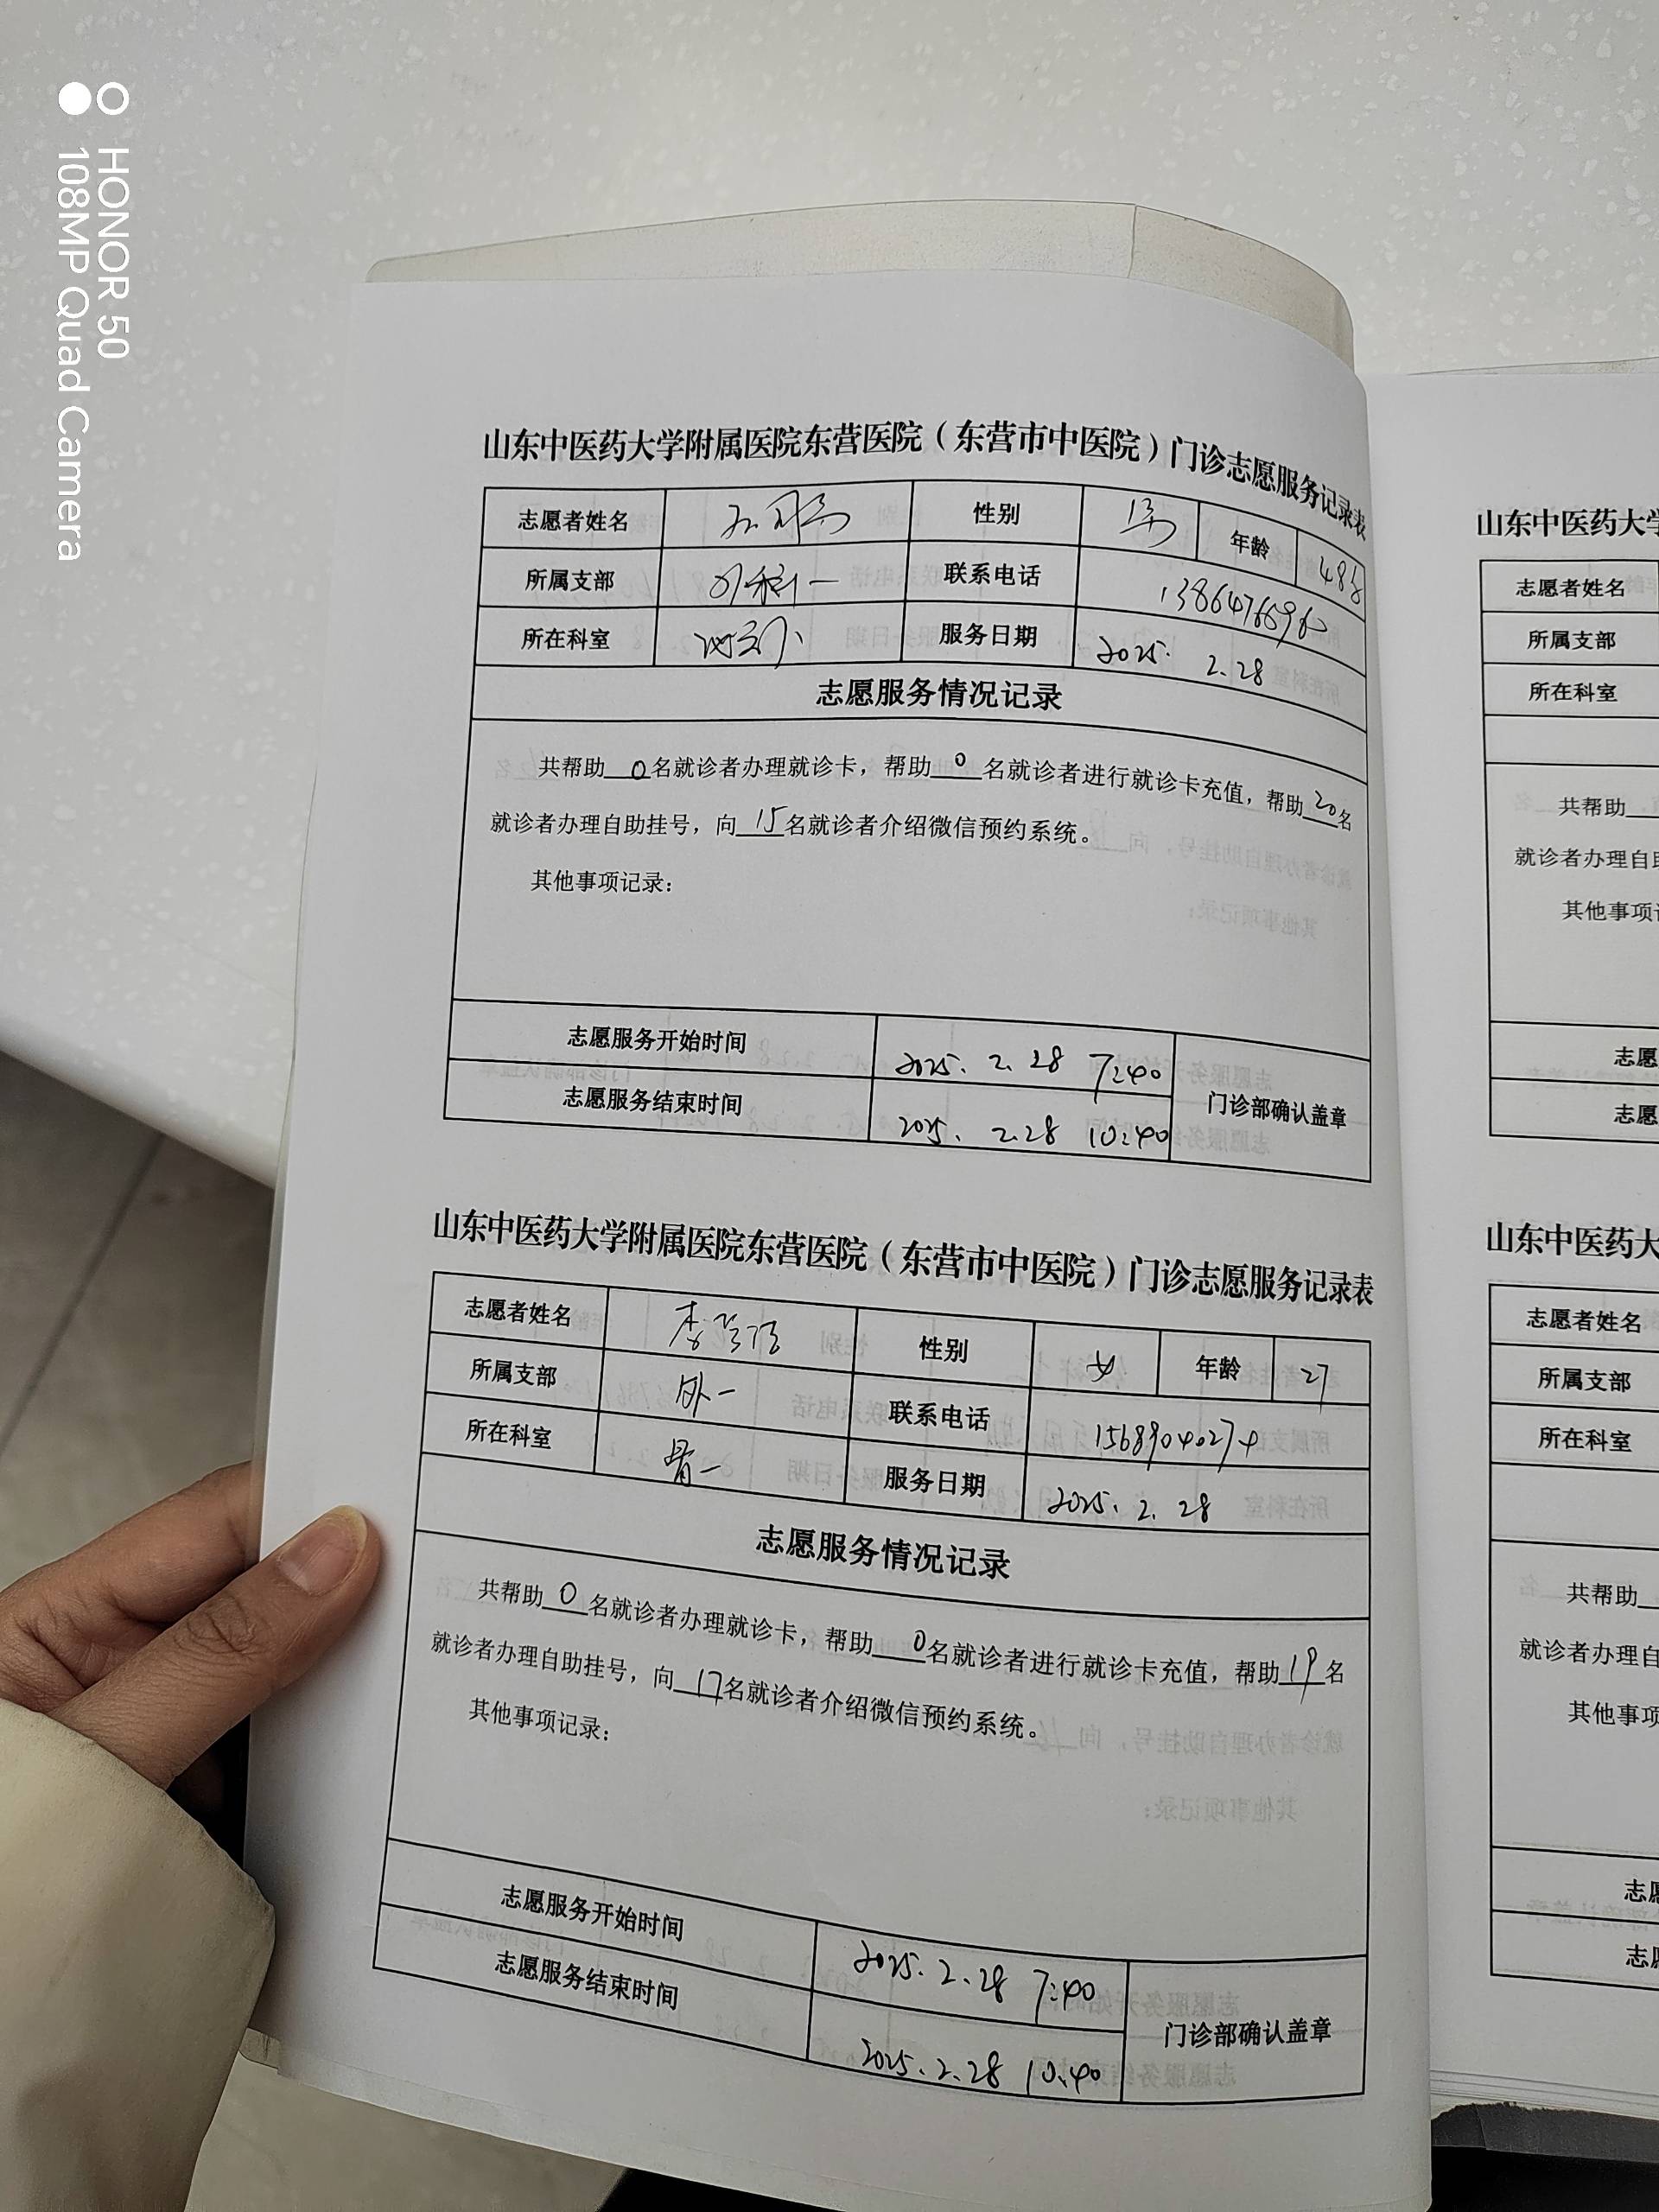 HONOR 50
108MP Quad Camera
山东中医药大学附属医院东营医院（东营市中医院）门诊志愿服务记录表
志愿者姓名 性别 年龄 48岁
所属支部 外科一 联系电话 13864766960
所在科室 服务日期 2025. 2.28
志愿服务情况记录
共帮助 0 名就诊者办理就诊卡，帮助 0 名就诊者进行就诊卡充值，帮助 20 名
就诊者办理自助挂号，向 15 名就诊者介绍微信预约系统。
其他事项记录：
志愿服务开始时间 2025. 2. 28 7:40
门诊部确认盖章
志愿服务结束时间 2025. 2.28 10:40
山东中医药大学附属医院东营医院（东营市中医院）门诊志愿服务记录表
志愿者姓名 李 性别 女 年龄 27
所属支部 外一 联系电话 15689040274
所在科室 骨一 服务日期 2025. 2. 28
志愿服务情况记录
共帮助 0 名就诊者办理就诊卡，帮助 0 名就诊者进行就诊卡充值，帮助 19 名
就诊者办理自助挂号，向 17 名就诊者介绍微信预约系统。
其他事项记录：
志愿服务开始时间 2025. 2. 28 7:40
门诊部确认盖章
志愿服务结束时间 2025. 2. 28 10:40
山东中医药大学
志愿者姓名
所属支部
所在科室
共帮助
就诊者办理自
其他事项
志愿
志愿
山东中医药大
志愿者姓名
所属支部
所在科室
共帮助
就诊者办理自
其他事项
志愿
志愿